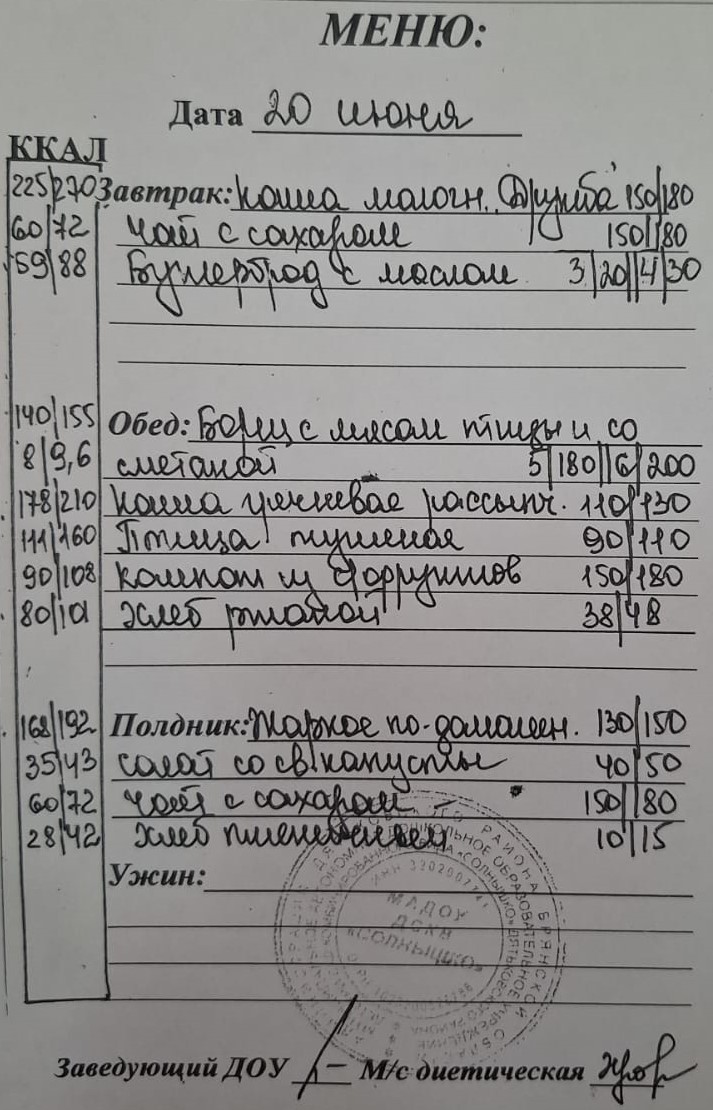 МЕНЮ:
Дата 20 июня
ККАЛ
225/270 Завтрак: Каша молочн. "Дружба" 150/180
60/72 Чай с сахаром 150/180
59/88 Бутерброд с маслом 3/20//4/30
140/155 Обед: Борщ с мясом птицы и со
8/9,6 сметаной 5/180//6/200
178/210 Каша гречневая рассыпч. 110/130
111/160 Птица тушеная 90/110
90/108 Компот из с/фруктов 150/180
80/101 Хлеб ржаной 38/48
168/192 Полдник: Жаркое по-домашн. 130/150
35/43 салат со св. капусты 40/50
60/72 Чай с сахаром - 150/180
28/42 Хлеб пшеничный 10/15
Ужин:
МАДОУ
ДСКВ
«СОЛНЫШКО»
Заведующий ДОУ М/с диетическая